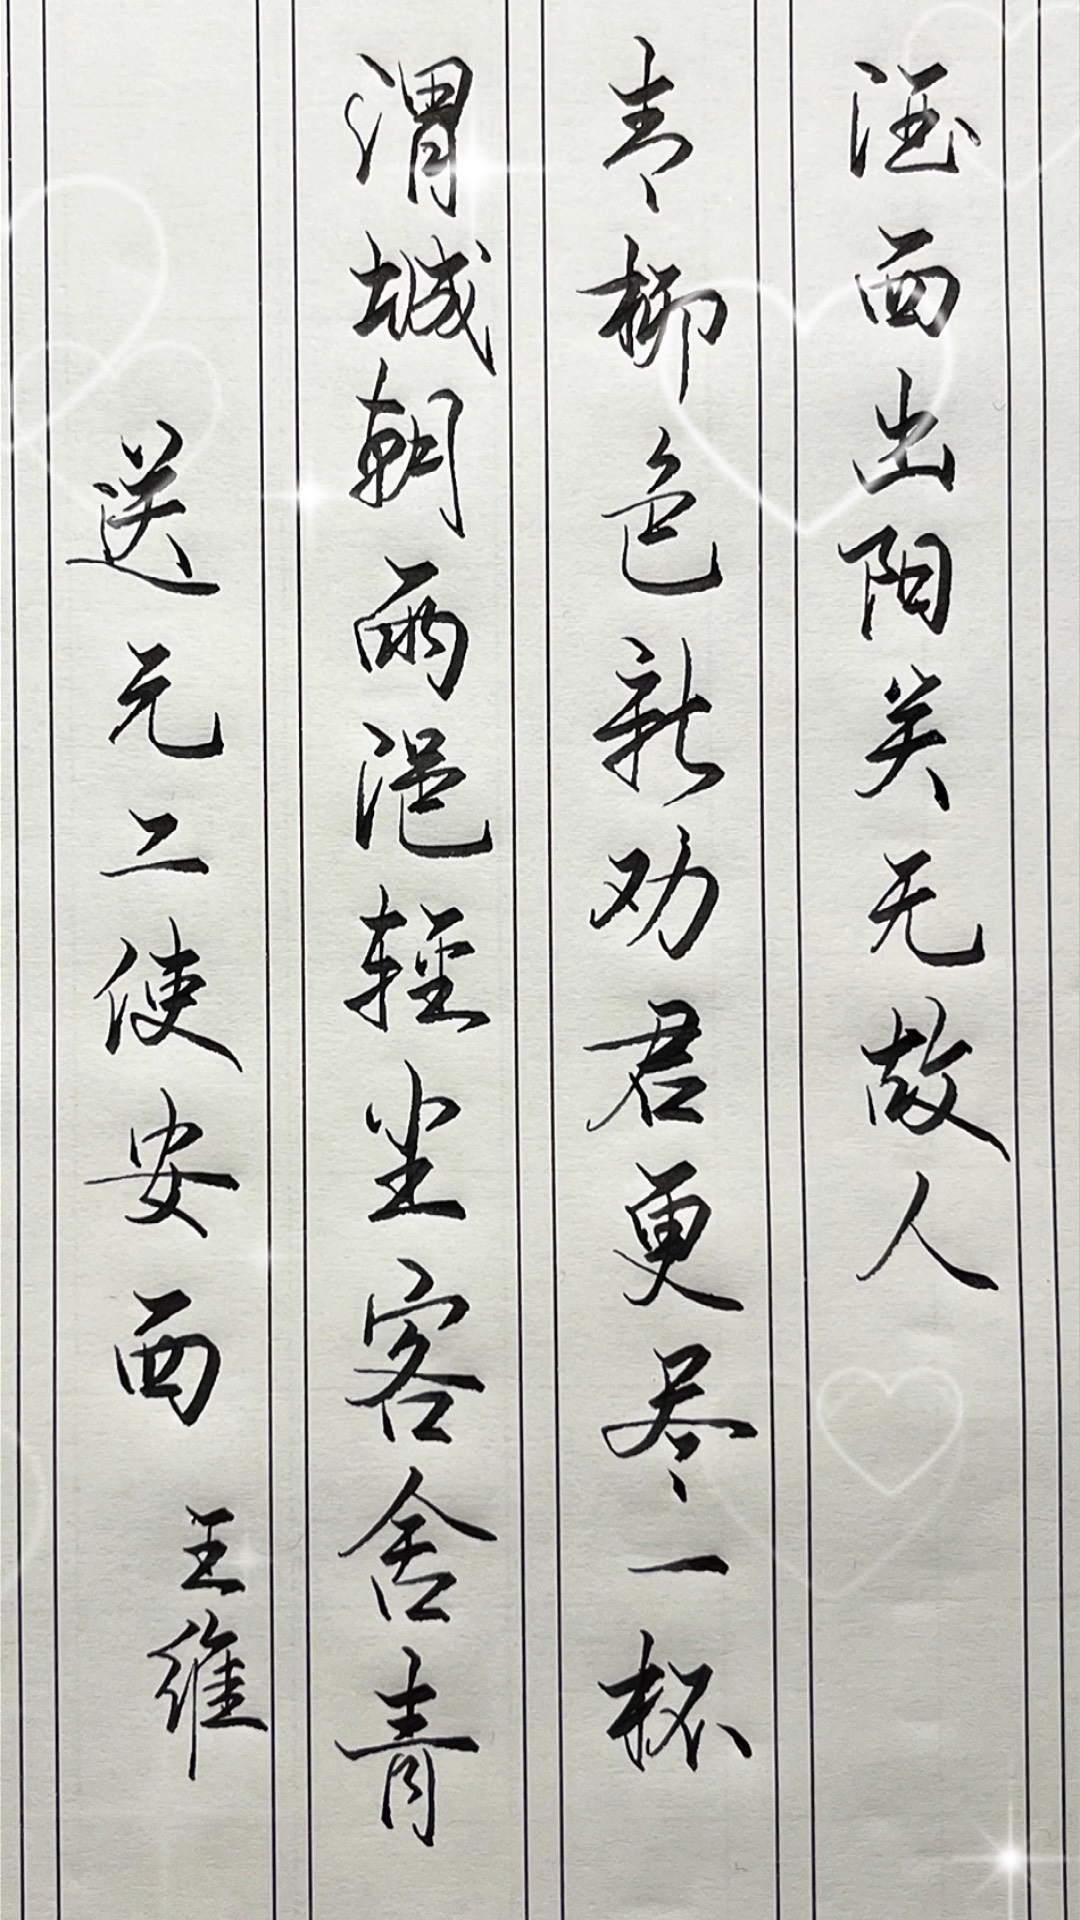 送元二使安西 王维
渭城朝雨浥轻尘客舍青
青柳色新劝君更尽一杯
酒西出阳关无故人